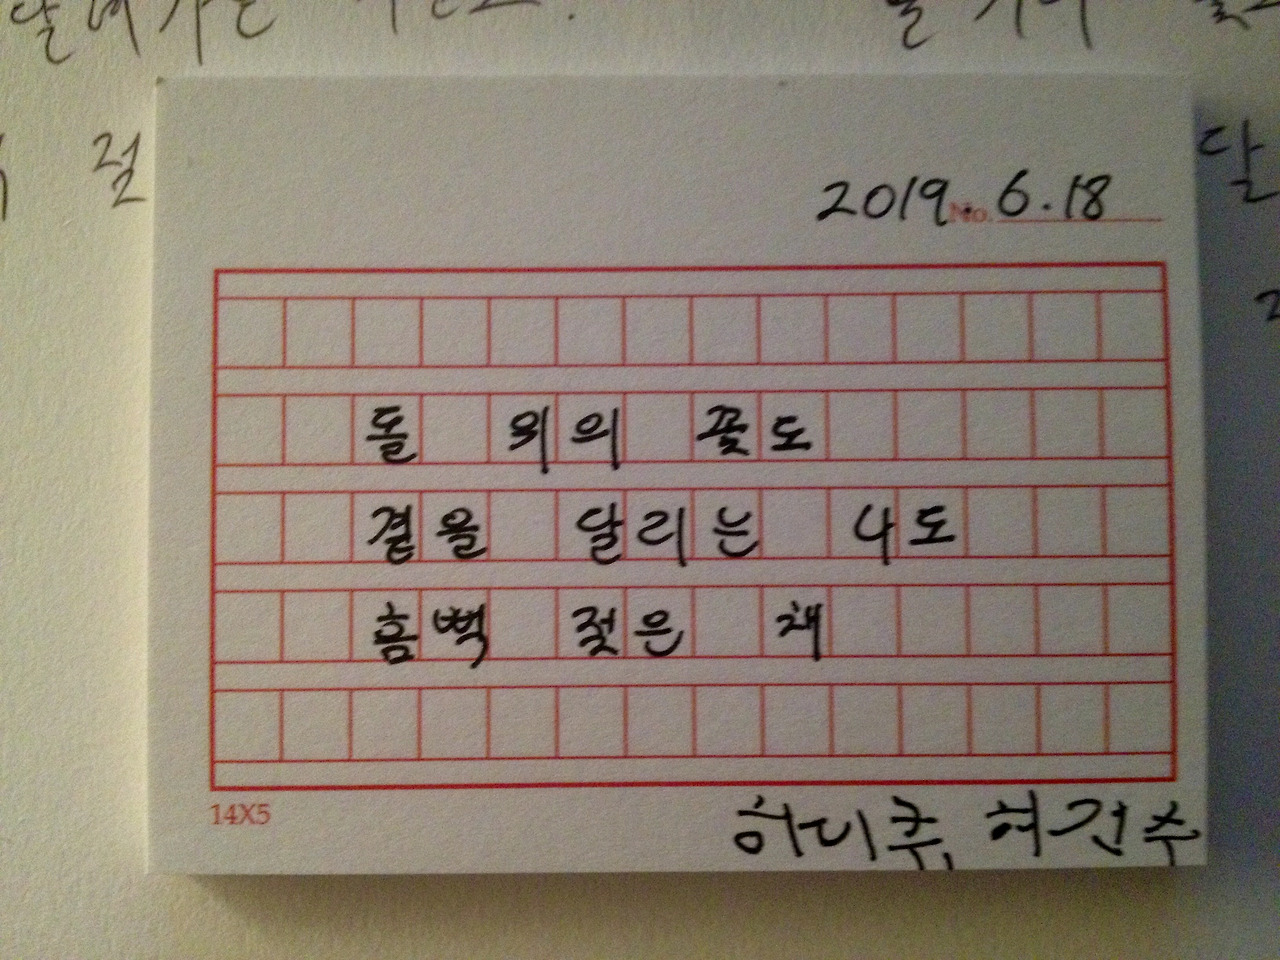 2019. No. 6.18
돌 외의 꽃도
곁을 달리는 나도
흠뻑 젖은 채
14X5
하이쿠, 허건수
달